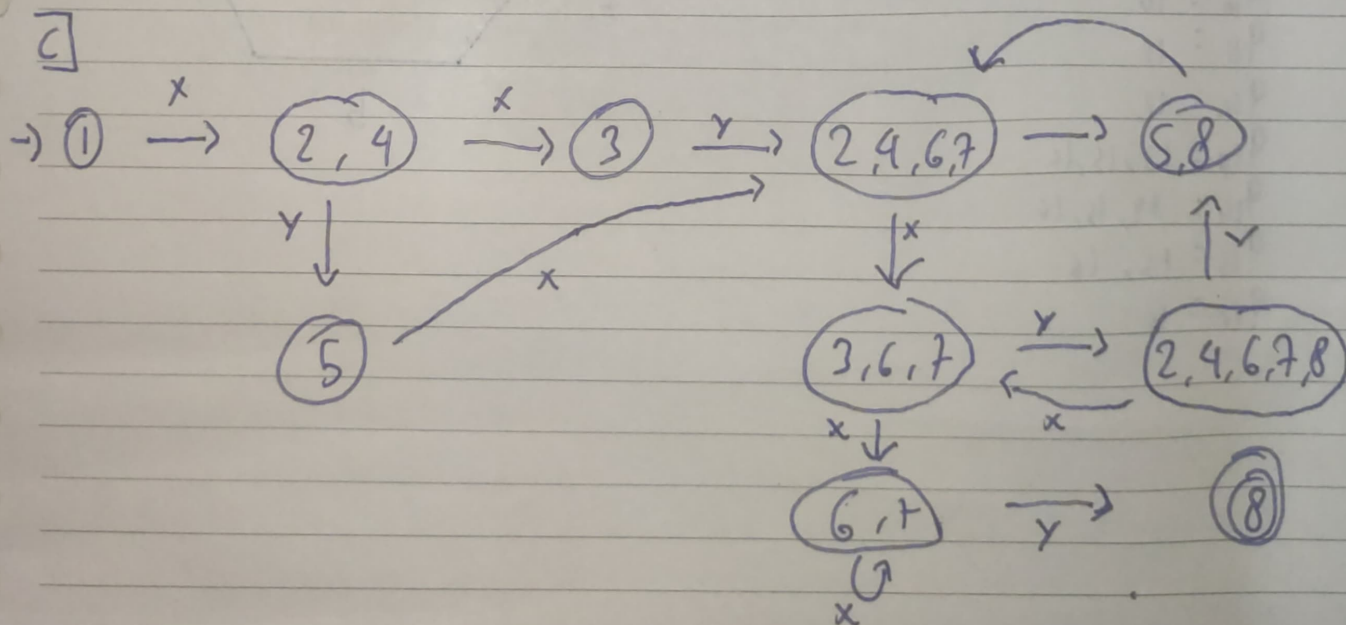 C
x x
→ 1 → 2, 4 → 3 Y → 2,4,6,7 → 5,8
Y x
x
5 3,6,7 Y → 2,4,6,7,8
x
x
6,7 → 8
Y
x